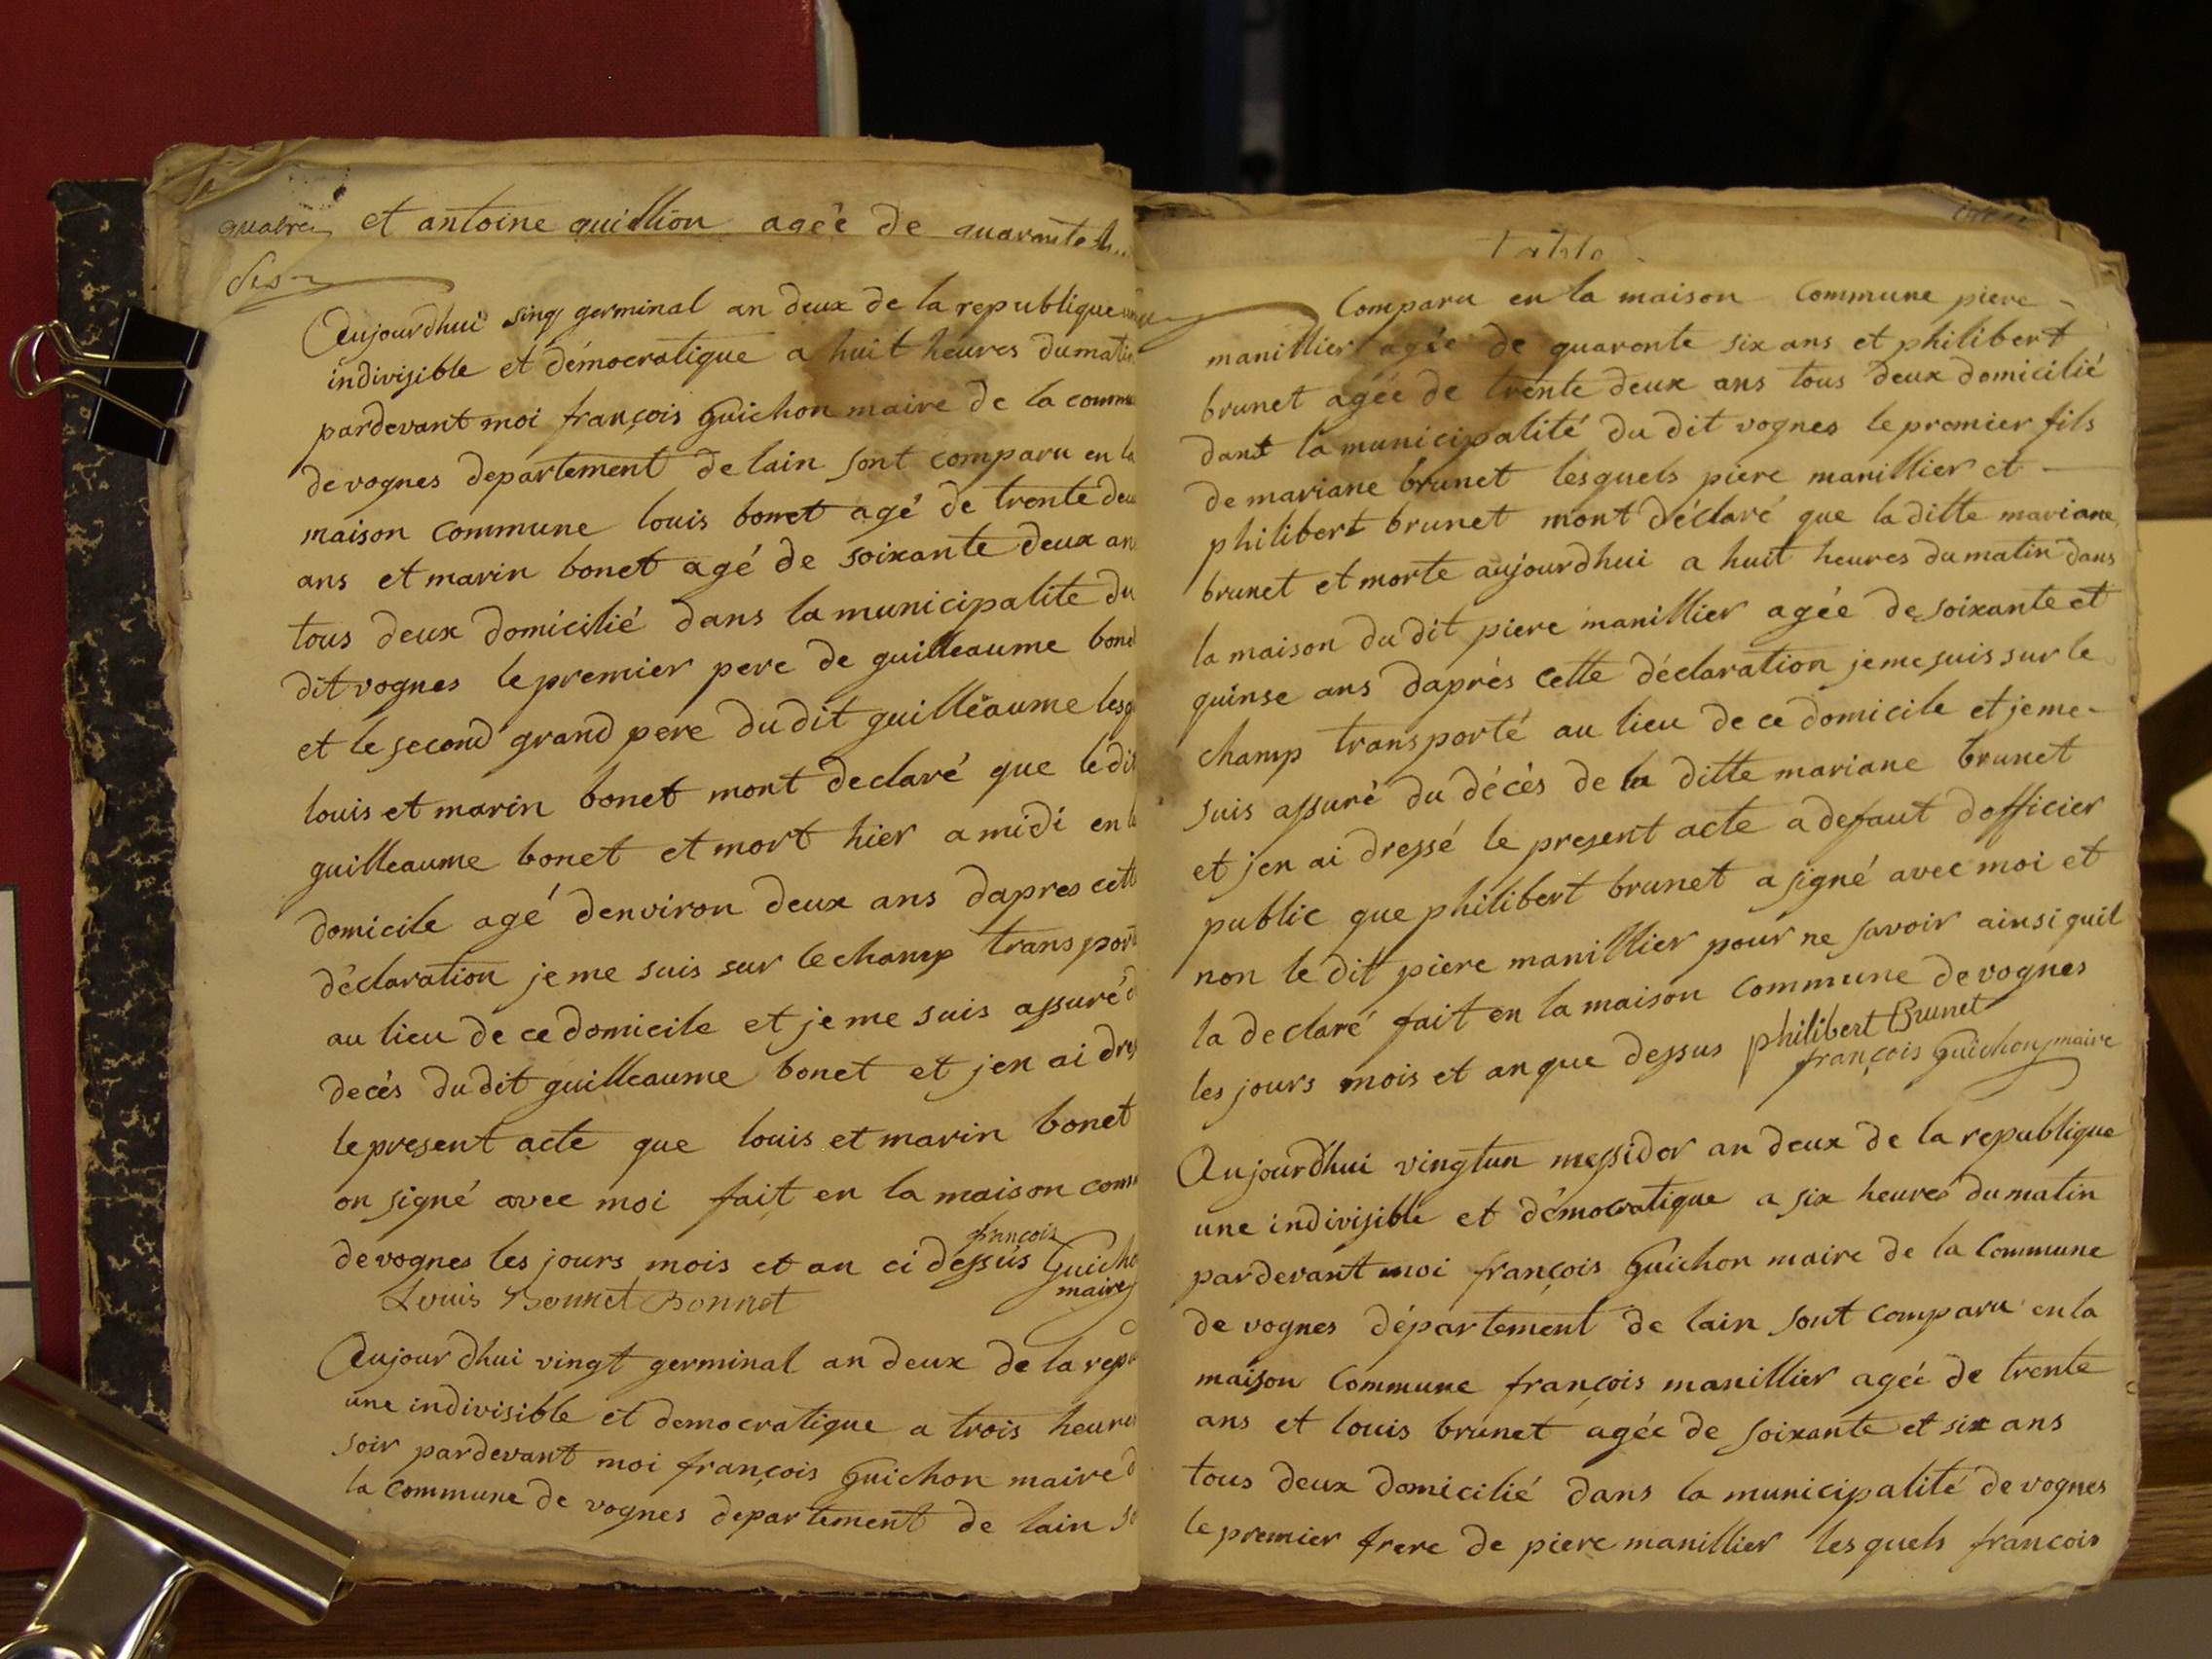 quatre et antoine guillion ageé de quarante
des
Aujourdhui sinq germinal an deux de la republique
indivisible et démocratique a huit heures du matin
pardevant moi françois Guichon maire de la commu
de vognes departement de lain sont comparu en la
maison commune louis bonet agé de trente deu
ans et marin bonet agé de soixante deux an
tous deux domicilié dans la municipalite du
dit vognes le premier pere de guilleaume bone
et le second grand pere du dit guilleaume lesq
louis et marin bonet mont declaré que le dit
guilleaume bonet et mort hier a midi en
domicile agé denviron deux ans dapres cett
déclaration je me suis sur le champ transport
au lieu de ce domicile et je me suis assuré d
decés du dit guilleaume bonet et jen ai dres
le present acte que louis et marin bonet
on signé avec moi fait en la maison comm
de vognes les jours mois et an ci dessus françois Guicho
maire
Louis Bonnet Bonnet
Aujourdhui vingt germinal an deux de la rep
une indivisible et democratique a trois heures
soir pardevant moi françois Guichon maire d
la commune de vognes departement de lain so
table
Comparu en la maison commune piere
manillier agée de quaronte six ans et philibert
brunet agée de trente deux ans tous deux domicilié
dant la municipalité du dit vognes le premier fils
de mariane brunet lesquels piere manillier et
philibert brunet mont déclaré que la ditte mariane
brunet et morte aujourdhui a huit heures du matin dans
la maison du dit piere manillier agée de soixante et
quinse ans daprés cette déclaration je me suis sur le
champ transporté au lieu de ce domicile et je me
suis assuré du décés de la ditte mariane brunet
et jen ai dressé le present acte a defaut dofficier
public que philibert brunet a signé avec moi et
non le dit piere manillier pour ne savoir ainsi quil
la declaré fait en la maison commune de vognes
les jours mois et an que dessus philibert Brunet
françois Guichon maire
Aujourdhui vingtun messidor an deux de la republique
une indivisible et démocratique a six heures du matin
pardevant moi françois Guichon maire de la commune
de vognes département de lain sont comparu en la
maison commune françois manillier agée de trente
ans et louis brunet agée de soixante et six ans
tous deux domicilié dans la municipalité de vognes
le premier frere de piere manillier lesquels francois